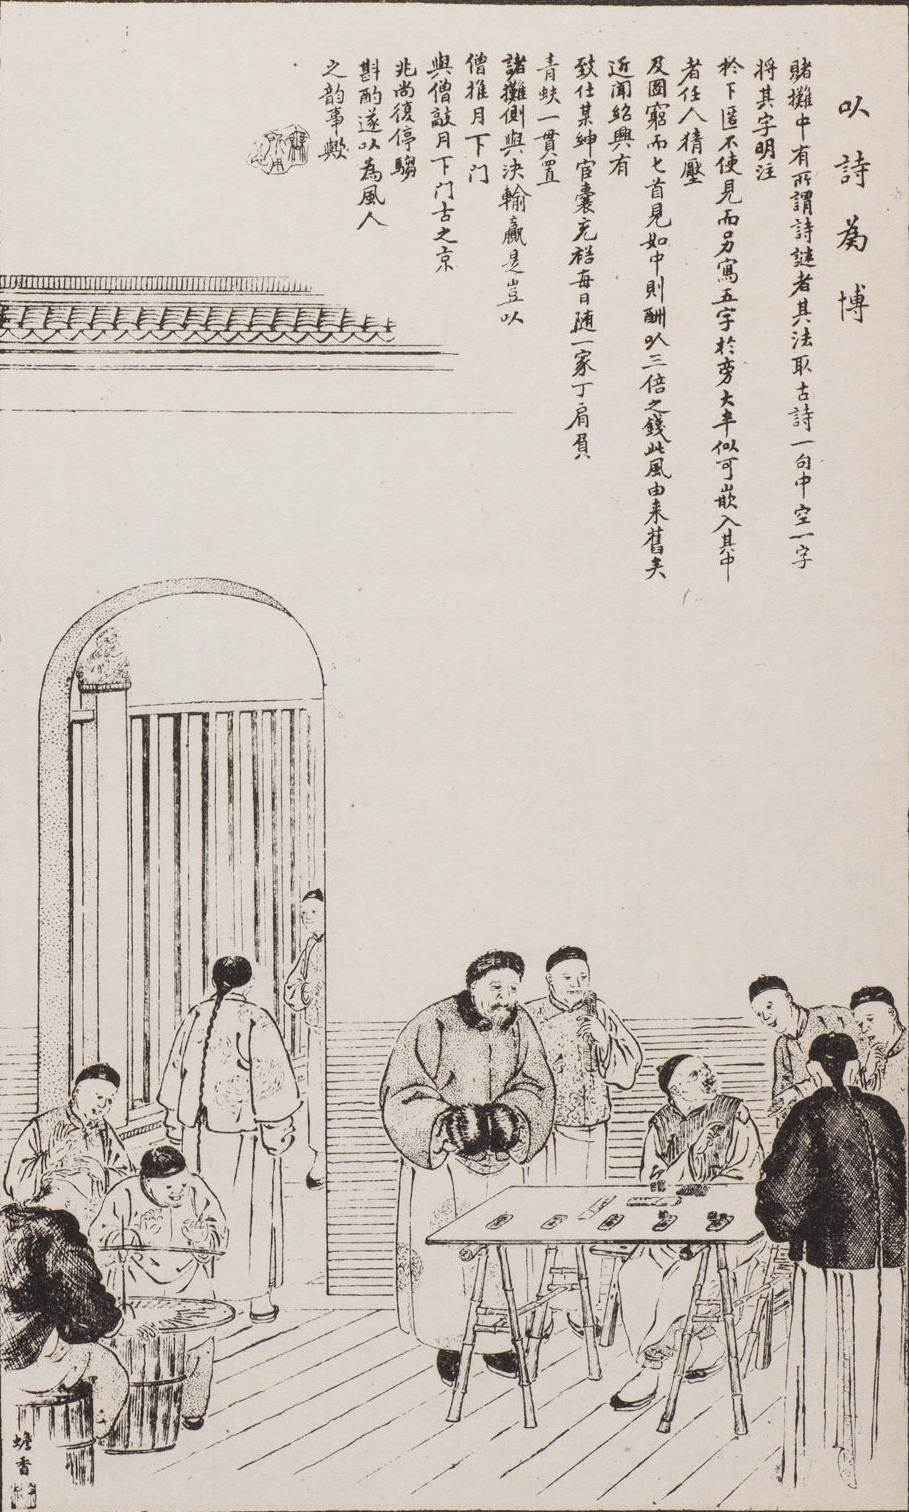 以詩為博
賭攤中有所謂詩謎者其法取古詩一句中空一字
將其字明注
於下匿不使見而另寫五字於旁大半似可嵌入其中
者任人猜壓
及圖窮而匕首見如中則酬以三倍之錢此風由来舊矣
近聞紹興有
致仕某紳宦囊充裕每日随一家丁肩負
青蚨一貫置
諸攤側與决輸贏是豈以
僧推月下门
與僧敲月下门古之京
兆尚復停騶
斟酌遂以為風人
之韵事歟
蟾香